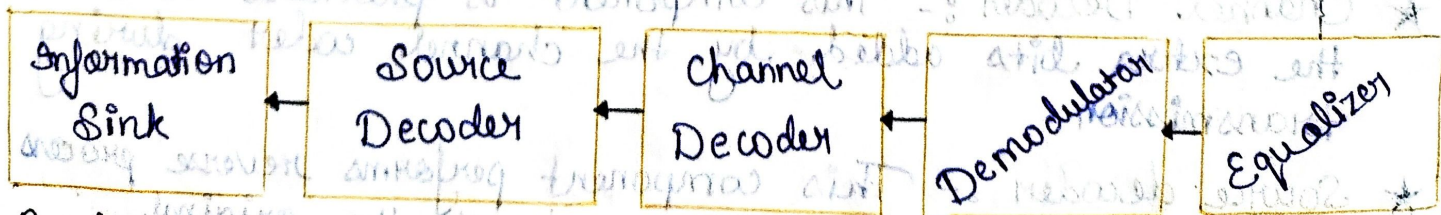 Information
Sink
Source
Decoder
Channel
Decoder
Demodulator
Equalizer